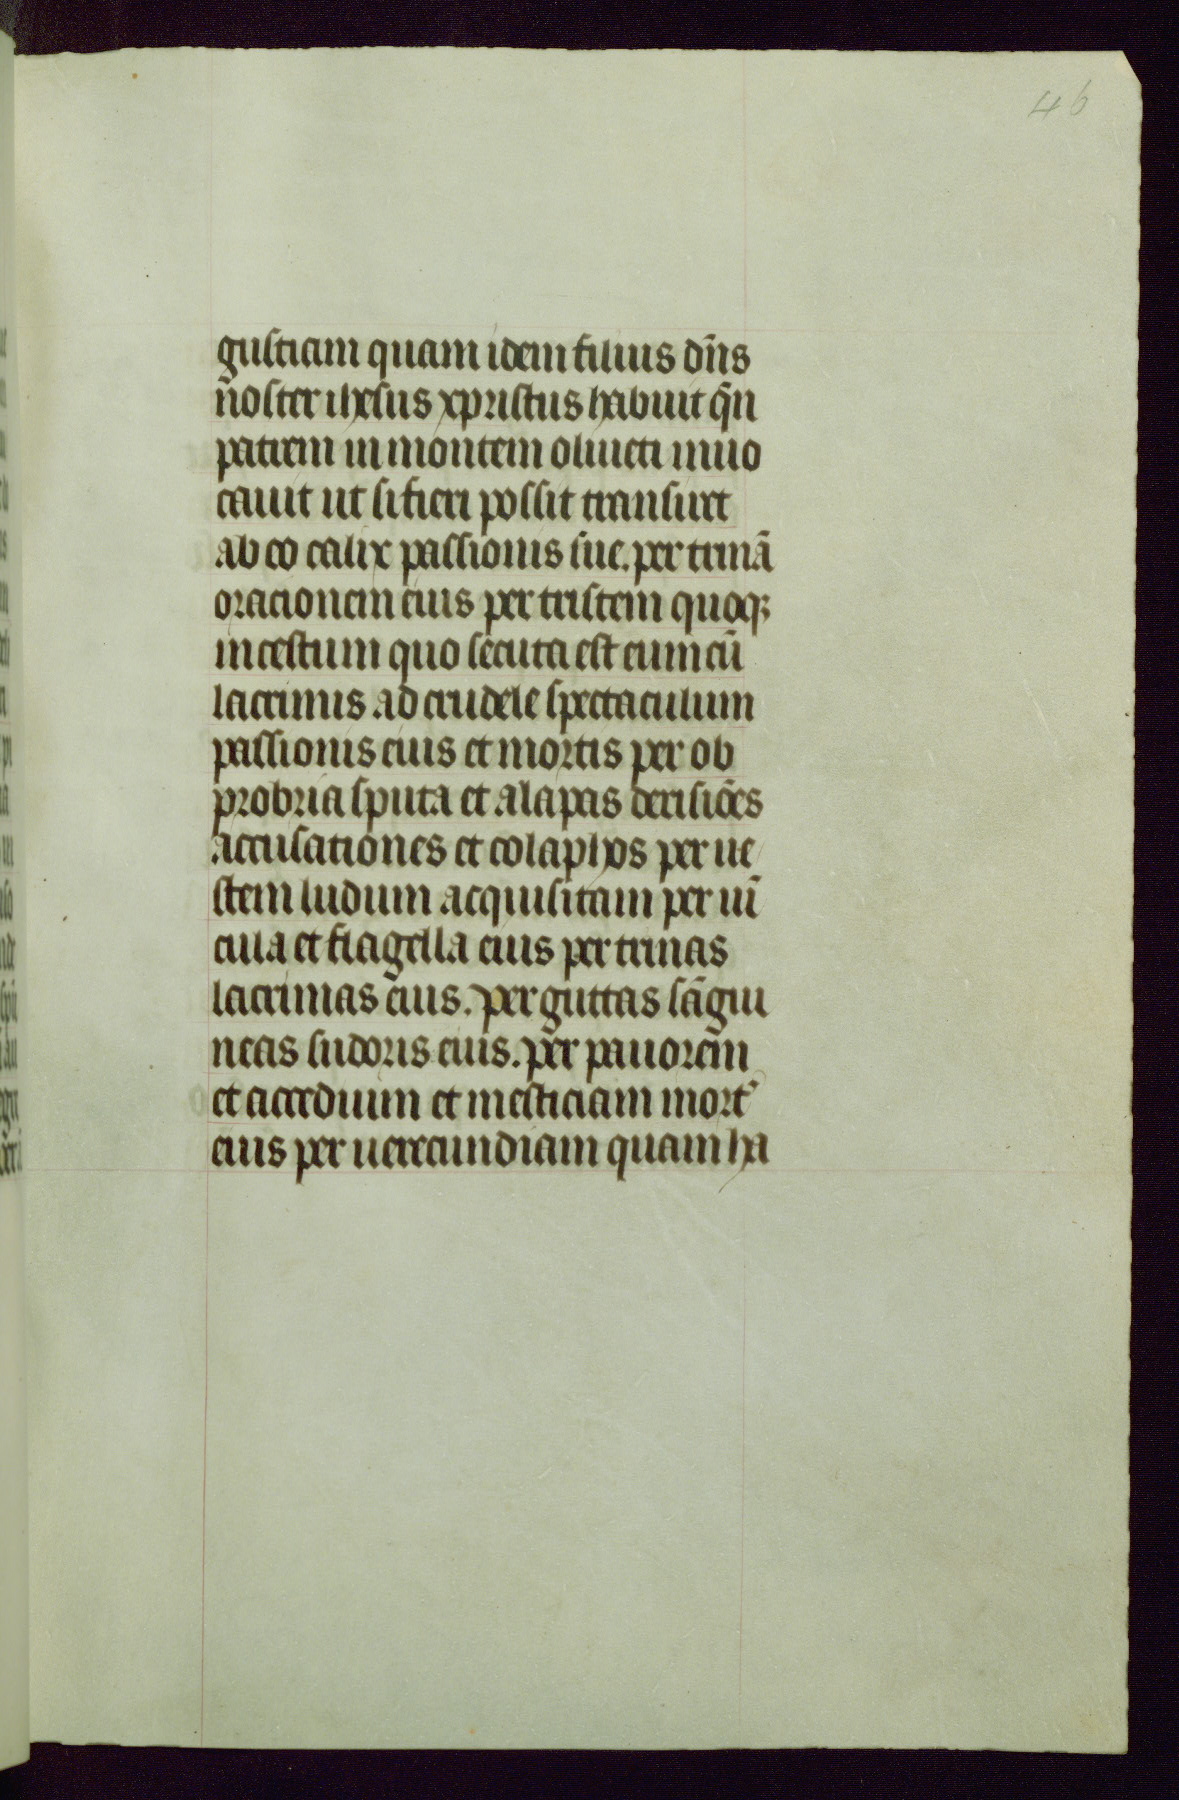 46
gustiam quam idem filius dn̄s
n̄oster ihesus xpristus habuit qn̄
patrem in montem oliueti inuo
cauit ut si fieri possit transiret
ab eo calix passionis sue. per trinā
oracionem eius per tristem quoq;
incestum quo secuta est eum cū
lacrimis ad crudele spectaculum
passionis eius et mortis per ob
probria sputa et alapas derisiōes
accusationes et colaphos per ue
stem ludum acquisitam per uī
cula et flagella eius per trinas
lacrimas eius. per guttas sāgui
neas sudoris eius. per pauorem
et accedium et mesticiam mort᾽
eius per uerecundiam quam ha